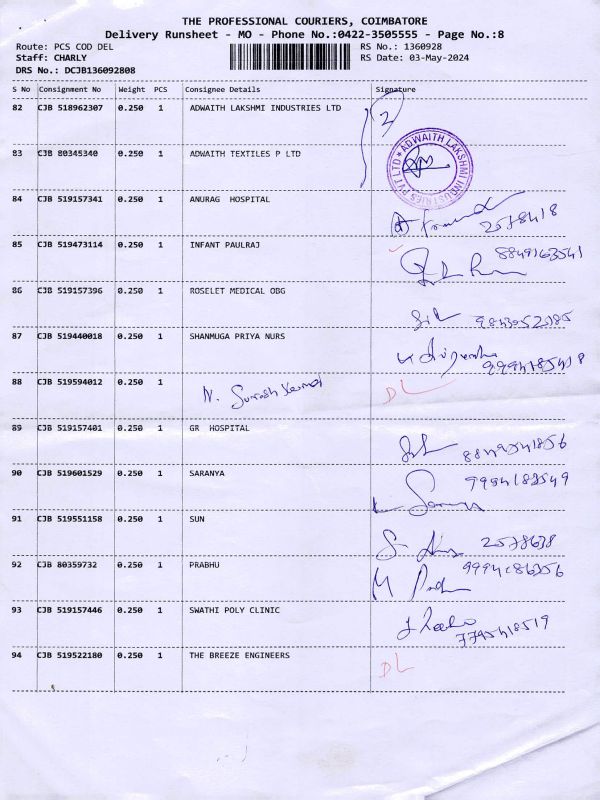 THE PROFESSIONAL COURIERS, COIMBATORE
Delivery Runsheet - MO - Phone No.:0422-3505555 - Page No.:8
Route: PCS COD DEL RS No.: 1360928
Staff: CHARLY RS Date: 03-May-2024
DRS No.: DCJB136092808
S No Consignment No Weight PCS Consignee Details Signature
82 CJB 518962307 0.250 1 ADWAITH LAKSHMI INDUSTRIES LTD 2
ADWAITH LAKSHMI INDUSTRIES PVT LTD
83 CJB 80345340 0.250 1 ADWAITH TEXTILES P LTD
84 CJB 519157341 0.250 1 ANURAG HOSPITAL
2578418
85 CJB 519473114 0.250 1 INFANT PAULRAJ 8849163541
86 CJB 519157396 0.250 1 ROSELET MEDICAL OBG
87 CJB 519440018 0.250 1 SHANMUGA PRIYA NURS
9994785418
88 CJB 519594012 0.250 1 N. Suresh Kumar DL
89 CJB 519157401 0.250 1 GR HOSPITAL
8849541856
90 CJB 519601529 0.250 1 SARANYA 9994182549
91 CJB 519551158 0.250 1 SUN
2578638
92 CJB 80359732 0.250 1 PRABHU 9994286356
93 CJB 519157446 0.250 1 SWATHI POLY CLINIC
7795418519
94 CJB 519522180 0.250 1 THE BREEZE ENGINEERS DL